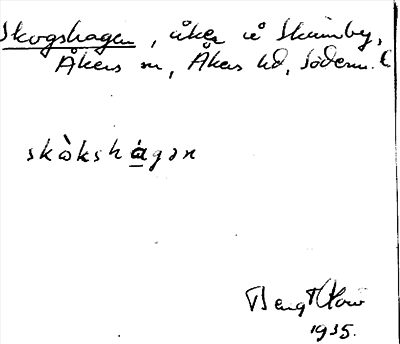 Skogshagen, åker å Skämby,
Åkers sn, Åkers hd, Söderm. l
skòkshágən
Bengt
1935.